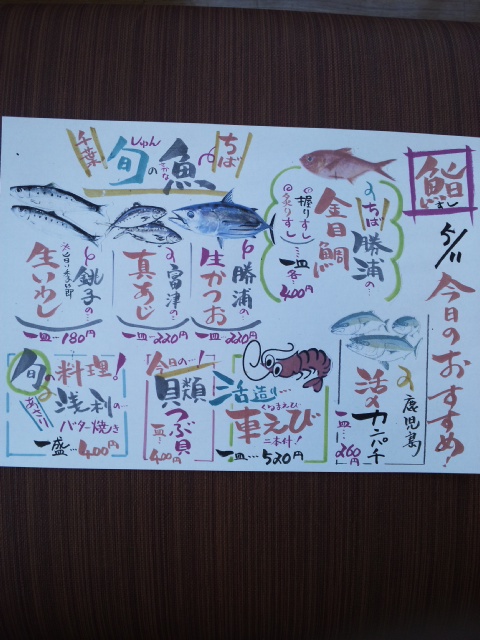 鮨
すし
5/11
今日のおすすめ!
ちば
勝浦の…
金目鯛
握りすし
炙りすし
一皿 各
400円
鹿児島
活〆
カンパチ
一皿…260円
千葉
旬の魚
しゅん
さかな
ちば
勝浦の…
生かつお
一皿…220円
富津の…
真あじ
一皿…220円
銚子の…
生いわし
一皿…180円
活造り…
くるまえび
車えび
二本付!
一皿…520円
今日の…!
貝類
つぶ貝
一皿…
400円
旬の料理!
あさり
浅利の
バター焼き
一盛…400円